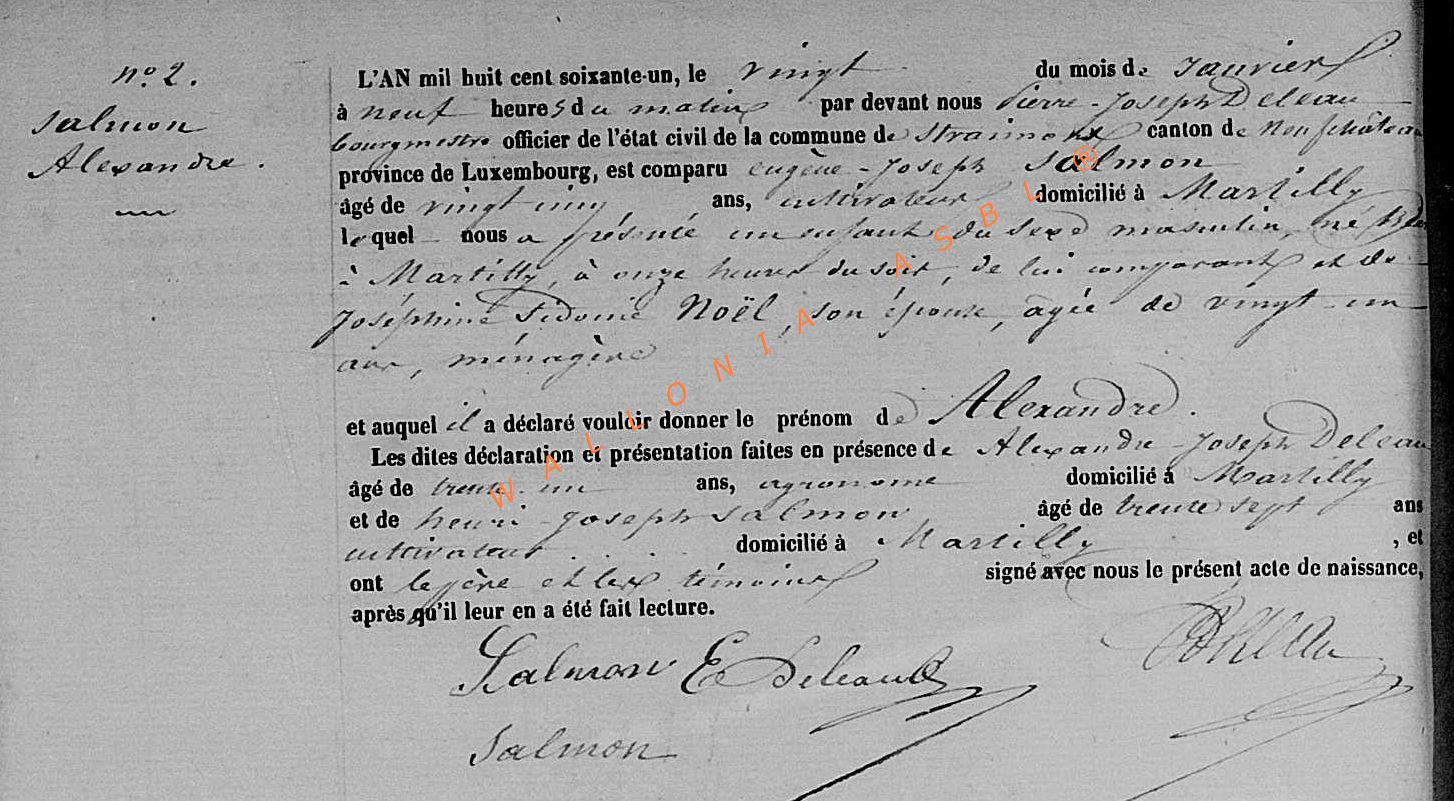 n° 2.
Salmon
Alexandre.
L'AN mil huit cent soixante-un, le vingt du mois de Janvier
à neuf heures du matin par devant nous Pierre-Joseph Deleau
bourgmestre officier de l'état civil de la commune de Straimont canton de Neufchâteau
province de Luxembourg, est comparu eugène-Joseph Salmon
âgé de vingt cinq ans, cultivateur domicilié à Martilly
lequel nous a présenté un enfant du sexe masculin, né
à Martilly, à onze heures du soir, de lui comparant et de
Joséphine Sidonie Noël, son épouse, agée de vingt-un
ans, ménagère
et auquel il a déclaré vouloir donner le prénom de Alexandre.
Les dites déclaration et présentation faites en présence de Alexandre-Joseph Deleau
âgé de trente-un ans, agronome domicilié à Martilly
et de henri-Joseph Salmon, âgé de trente sept ans
cultivateur domicilié à Martilly, et
ont le père et les témoins signé avec nous le présent acte de naissance,
après qu'il leur en a été fait lecture.
Salmon E Deleau
Salmon
WALLONIA ASBL ®